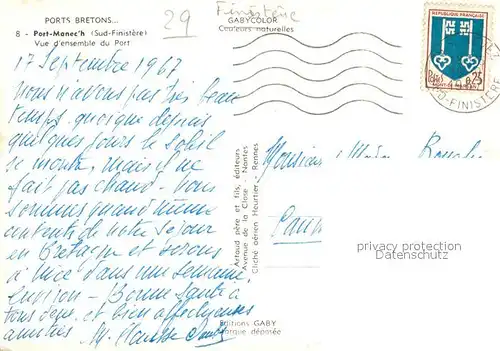 PORTS BRETONS...
29
Finistère
GABYCOLOR
Couleurs naturelles
8 - Port-Manec'h (Sud-Finistère)
Vue d'ensemble du Port
17 Septembre 1967
Nous n'avons pas très beau
temps quoique depuis
quelques jours le soleil
se montre, mais il ne
fait pas chaud. Nous
sommes quand même
contents de notre séjour
en Bretagne et serons
à Nice dans une semaine
environ - Bonne santé à
tous deux et bien affectueuses
amitiés M.
Artaud père et fils, éditeurs
Avenue de la Close - Nantes
Cliché aérien Heurtier - Rennes
Editions GABY
Marque déposée
REPUBLIQUE FRANÇAISE
Postes
0,25
MONT-DE-MARSAN
D-FINISTERE
Monsieur
privacy protection
Datenschutz